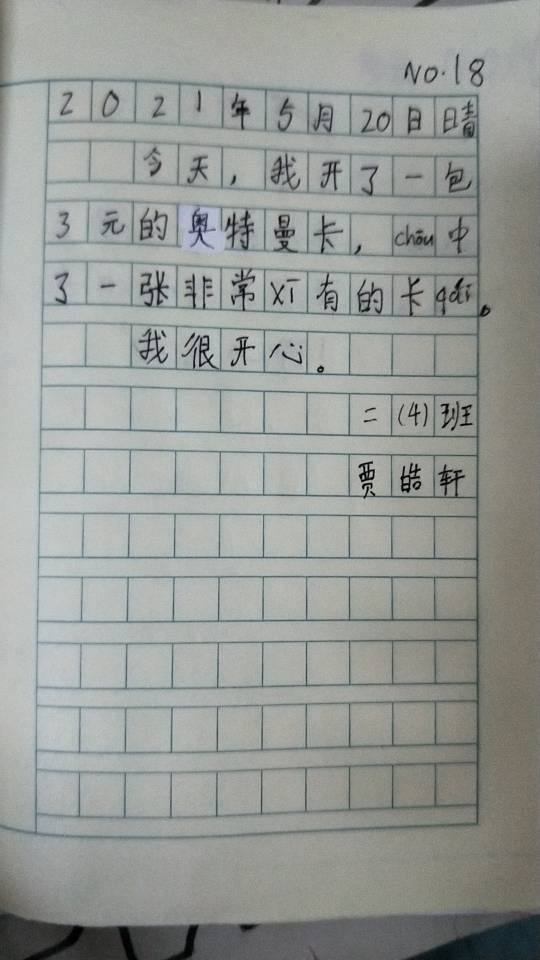 NO.18
2021年5月20日晴
今天，我开了一包
3元的奥特曼卡，chōu中
了一张非常xī有的卡
我很开心。
二（4）班
贾皓轩